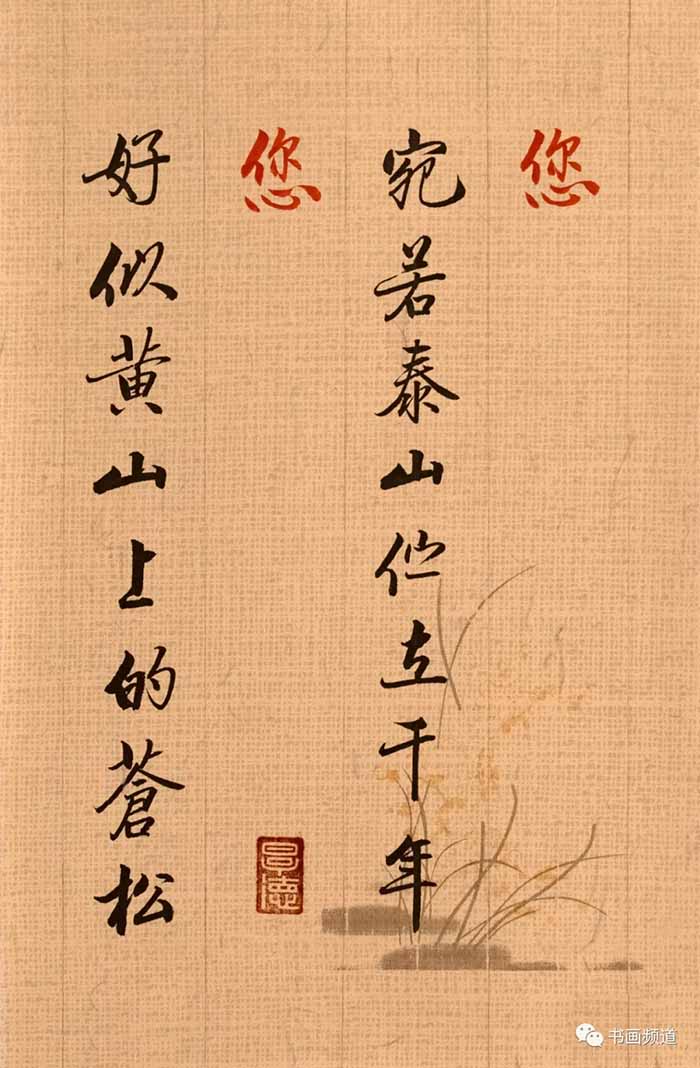 您
宛若泰山伫立千年
您
好似黄山上的蒼松
书画频道